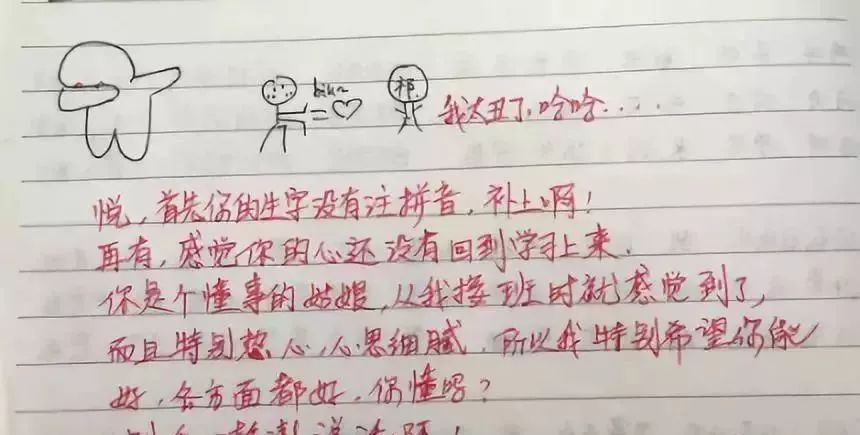 biu~
祁
我太丑了，哈哈....
悦，首先你的生字没有注拼音，补上啊！
再有，感觉你的心还没有回到学习上来，
你是个懂事的姑娘，从我接班时就感觉到了，
而且特别热心，心思细腻，所以我特别希望你能
好，各方面都好，你懂吗？